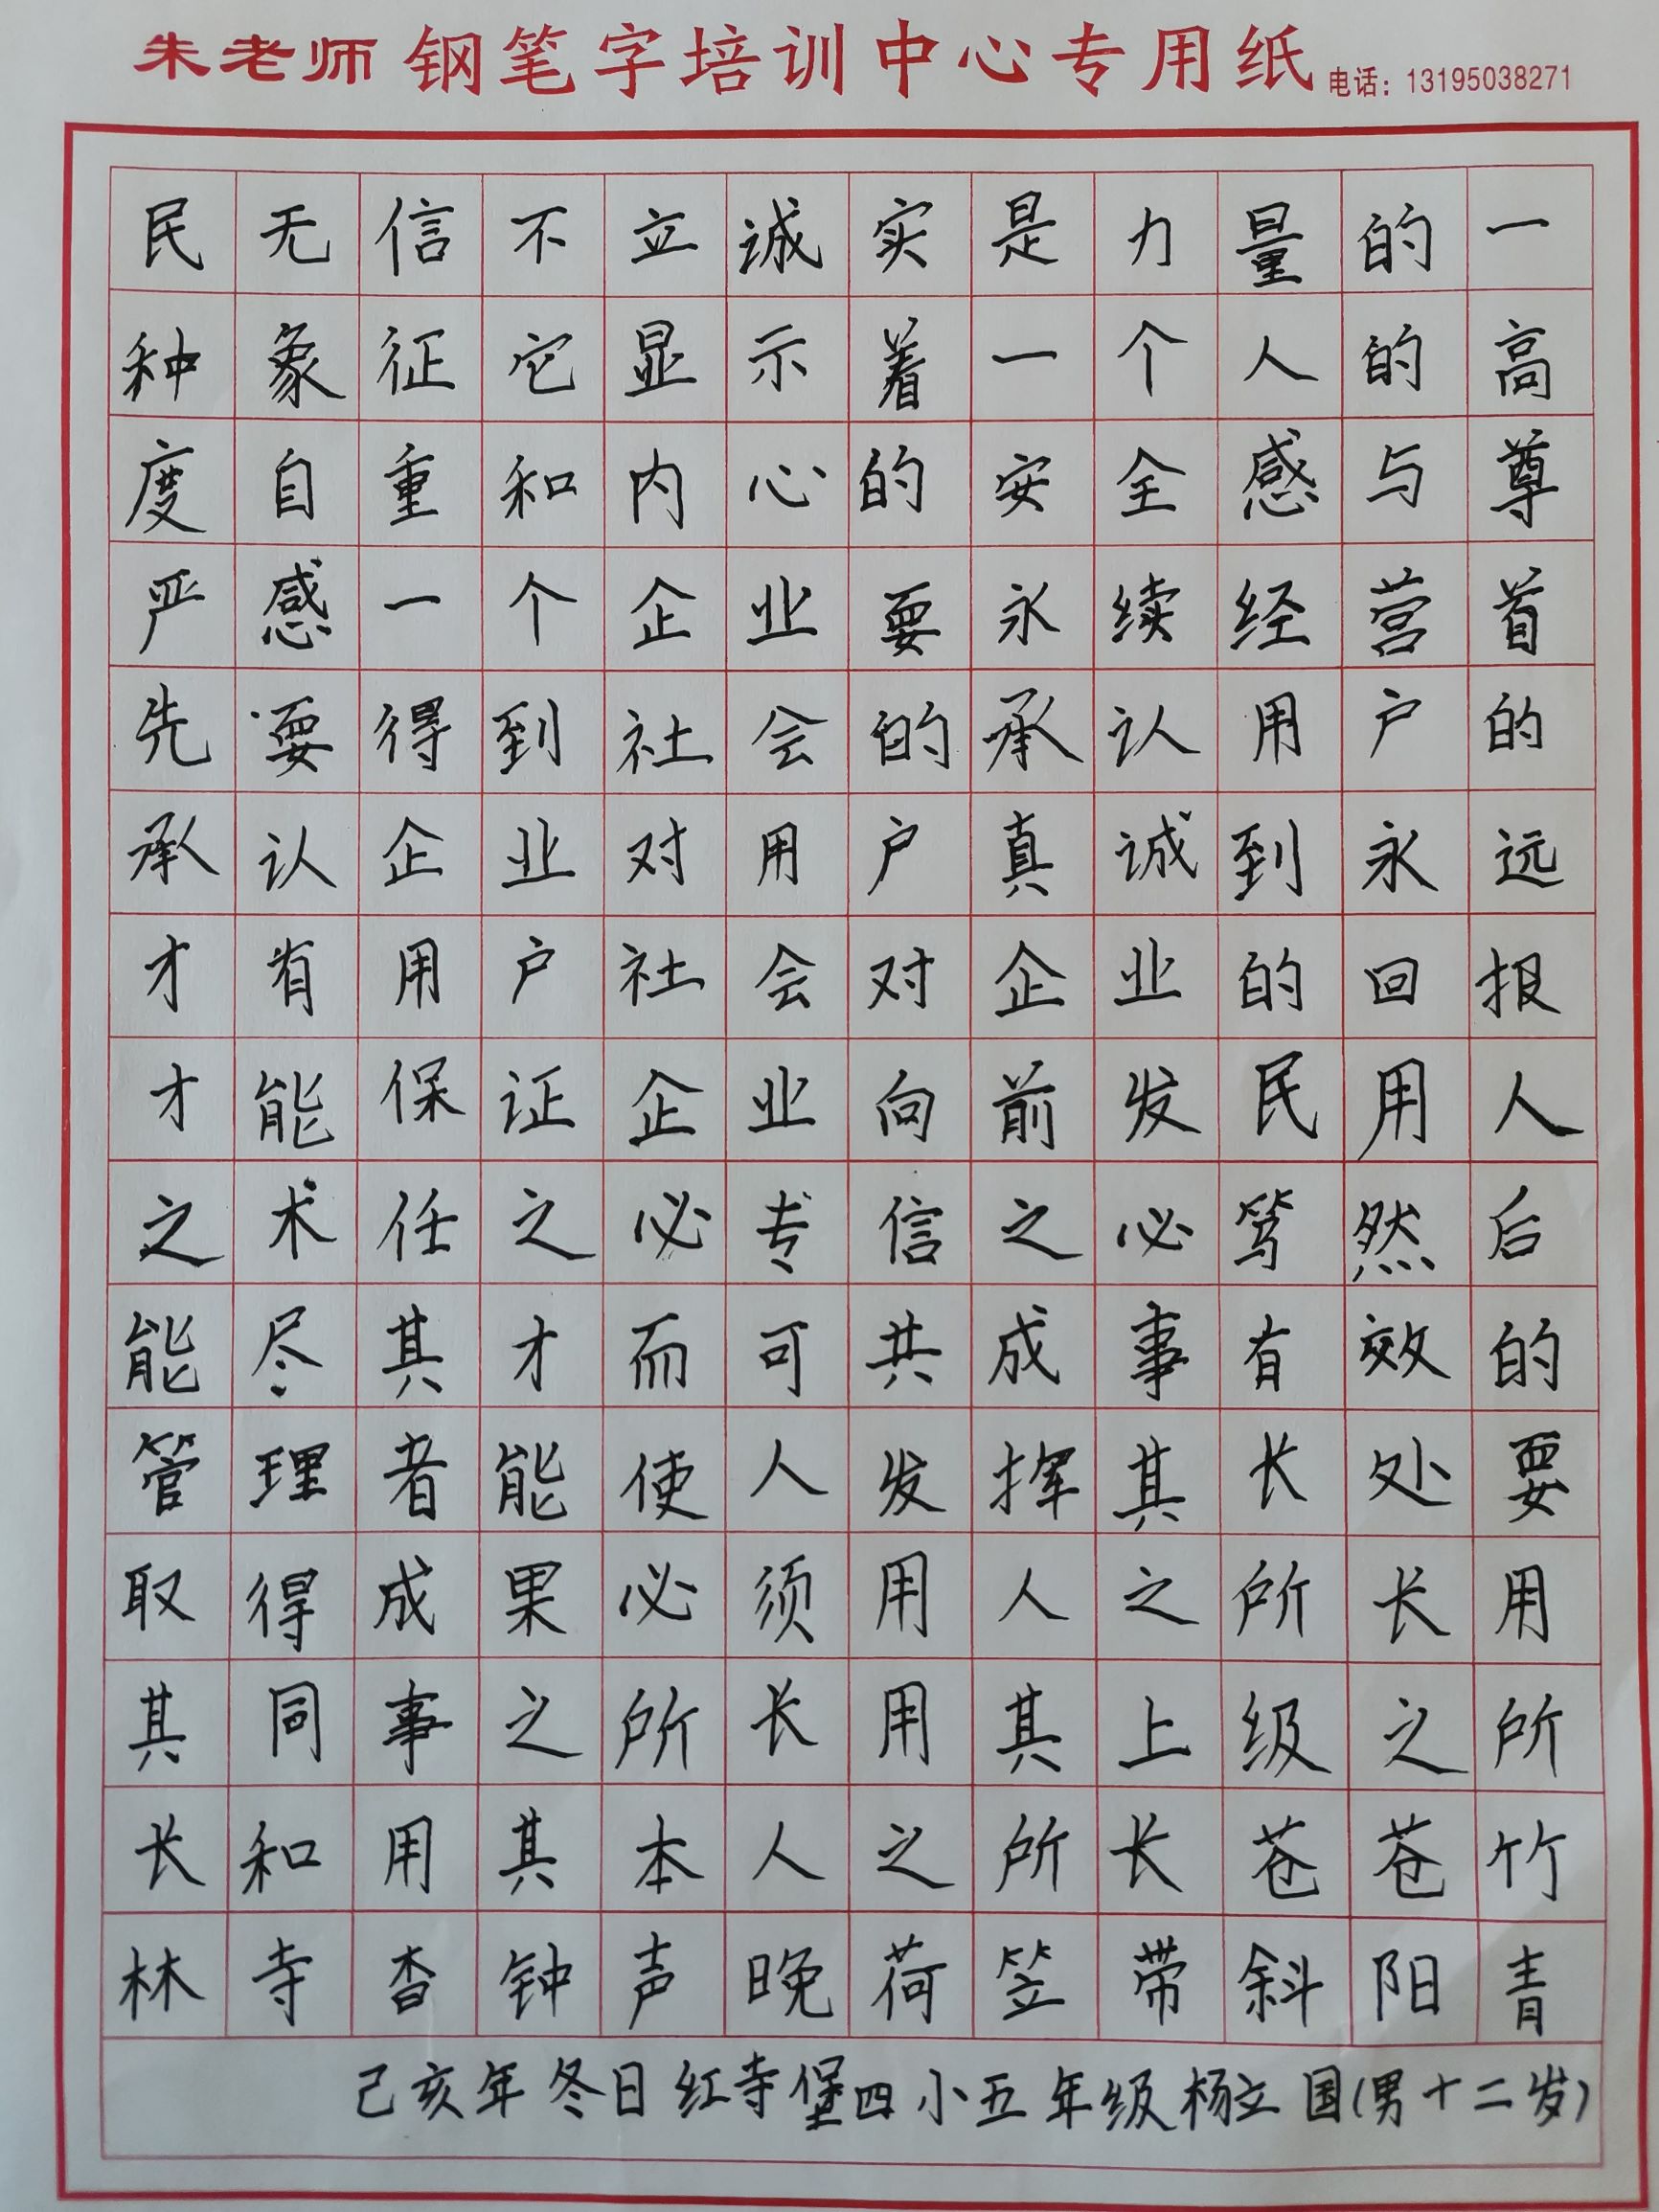 朱老师 钢笔字培训中心专用纸 电话：13195038271
民无信不立诚实是力量的一
种象征它显示着一个人的高
度自重和内心的安全感与尊
严感一个企业要永续经营首
先要得到社会的承认用户的
承认企业对用户真诚到永远
才有用户社会对企业的回报
才能保证企业向前发民用人
之术任之必专信之必笃然后
能尽其才而可共成事有效的
管理者能使人发挥其长处要
取得成果必须用人之所长用
其同事之所长用其上级之所
长和用其本人之所长苍苍竹
林寺杳钟声晚荷笠带斜阳青
己亥年冬日红寺堡四小五年级杨立国(男十二岁)